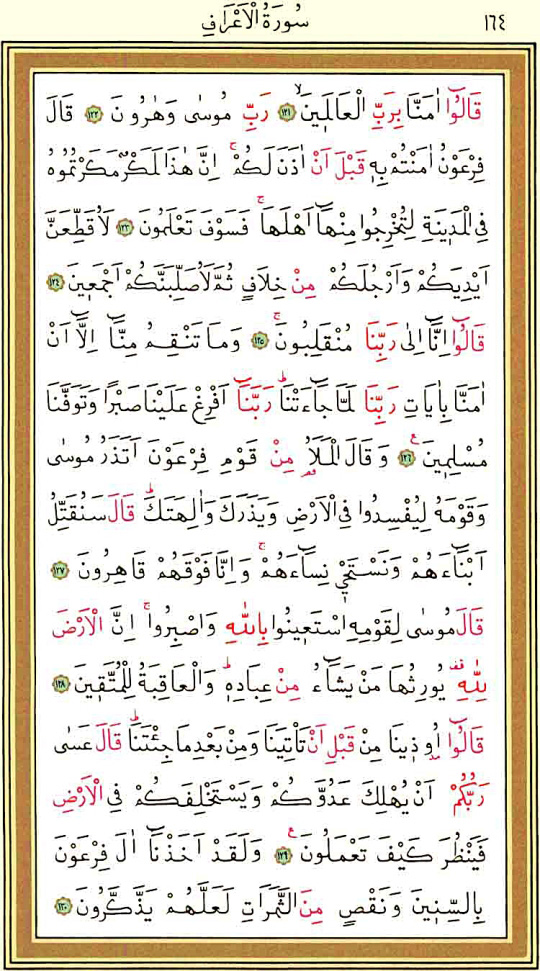 سُورَةُ الْاَعْرَافِ ١٦٤
قَالُٓوا اٰمَنَّا بِرَبِّ الْعَالَم۪ينَۙ ﴿١٢١﴾ رَبِّ مُوسٰى وَهٰرُونَ ﴿١٢٢﴾ قَالَ
فِرْعَوْنُ اٰمَنْتُمْ بِه۪ قَبْلَ اَنْ اٰذَنَ لَكُمْۚ اِنَّ هٰذَا لَمَكْرٌ مَكَرْتُمُوهُ
فِي الْمَد۪ينَةِ لِتُخْرِجُوا مِنْهَٓا اَهْلَهَاۚ فَسَوْفَ تَعْلَمُونَ ﴿١٢٣﴾ لَاُقَطِّعَنَّ
اَيْدِيَكُمْ وَاَرْجُلَكُمْ مِنْ خِلَافٍ ثُمَّ لَاُصَلِّبَنَّكُمْ اَجْمَع۪ينَ ﴿١٢٤﴾
قَالُٓوا اِنَّٓا اِلٰى رَبِّنَا مُنْقَلِبُونَۚ ﴿١٢٥﴾ وَمَا تَنْقِمُ مِنَّٓا اِلَّٓا اَنْ
اٰمَنَّا بِاٰيَاتِ رَبِّنَا لَمَّا جَٓاءَتْنَاۜ رَبَّنَٓا اَفْرِغْ عَلَيْنَا صَبْرًا وَتَوَفَّنَا
مُسْلِم۪ينَ۟ ﴿١٢٦﴾ وَقَالَ الْمَلَاُ مِنْ قَوْمِ فِرْعَوْنَ اَتَذَرُ مُوسٰى
وَقَوْمَهُ لِيُفْسِدُوا فِي الْاَرْضِ وَيَذَرَكَ وَاٰلِهَتَكَۜ قَالَ سَنُقَتِّلُ
اَبْنَٓاءَهُمْ وَنَسْتَحْي۪ نِسَٓاءَهُمْۚ وَاِنَّا فَوْقَهُمْ قَاهِرُونَ ﴿١٢٧﴾
قَالَ مُوسٰى لِقَوْمِهِ اسْتَع۪ينُوا بِاللّٰهِ وَاصْبِرُواۚ اِنَّ الْاَرْضَ
لِلّٰهِ يُورِثُهَا مَنْ يَشَٓاءُ مِنْ عِبَادِه۪ۜ وَالْعَاقِبَةُ لِلْمُتَّق۪ينَ ﴿١٢٨﴾
قَالُٓوا اُو۫ذ۪ينَا مِنْ قَبْلِ اَنْ تَأْتِيَنَا وَمِنْ بَعْدِ مَا جِئْتَنَاۜ قَالَ عَسٰى
رَبُّكُمْ اَنْ يُهْلِكَ عَدُوَّكُمْ وَيَسْتَخْلِفَكُمْ فِي الْاَرْضِ
فَيَنْظُرَ كَيْفَ تَعْمَلُونَ۟ ﴿١٢٩﴾ وَلَقَدْ اَخَذْنَٓا اٰلَ فِرْعَوْنَ
بِالسِّن۪ينَ وَنَقْصٍ مِنَ الثَّمَرَاتِ لَعَلَّهُمْ يَذَّكَّرُونَ ﴿١٣٠﴾